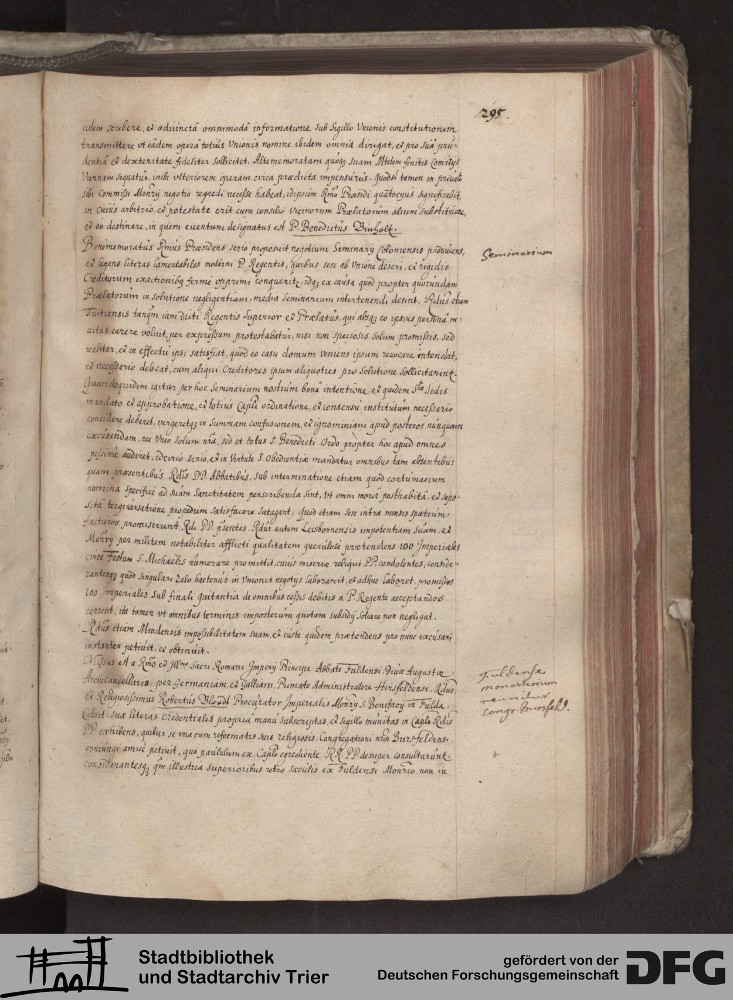 295.
idem scribere, et adiuncta omnimoda informatione sub sigillo Unionis constitutionem
transmittere ut eadem opera totius Unionis nomine ibidem omnia dirigat, et pro sua pru-
dentia et dexteritate fideliter sollicitet. suam finitis Comitijs
Viennam sequatur, inibi ulteriorem operam circa praedicta impensurus. Quodsi tamen in
sibi Commissi Monrij negotio regredi necesse habeat, idipsum Rmo Praesidi quantocyus significabit,
in cuius arbitrio et potestate erit cum consilio vicinorum Praelatorum alium substituere,
et eo destinare, in quem eventum designatus est P. Benedictus
Bonememoratus Rmus Praesidens serio proposuit negotium Seminarij Coloniensis
et legens literas lamentabiles moderni P. Regentis, quibus sese ab Unione deseri, et rigidis
Creditorum exactionibq ferme opprimi conqueritr, idq ex causa quod propter quorundam
Praelatorum in solutione negligentiam, media seminarium intertenendi desint. Rdus etiam
Tuitiensis tanqm iam dicti Regentis Superior et Praelatus, qui absq eo ipsius persona in-
vitus carere voluit, per expressum protestabatur, nisi non speciosis solum promissis, sed
realiter, et in effectu ipsi satisfiat, quod eo casu domum veniens ipsum revocare intendat,
et necessario debeat, cum aliqui Creditores ipsum aliquoties pro solutione sollicitarint.
Quandoquidem igitur per hoc Seminarium nostrum bona intentione, et quidem Stae Sedis
mandato et approbatione, et totius Capli ordinatione, et consensu institutum necessario
concidere deberet, vergeretq in summam confusionem, et ignominiam apud posteros nunquam
excusandam, nec Unio solum nra, sed et totus S. Benedicti Ordo propter hoc apud omnes
pessime audiret, idcirco serio, et in virtute S. Obedientiae mandatur omnibus tam absentibus
quam praesentibus Rdis DD. Abbatibus, sub interminatione etiam quod contumacium
nomina specifice ad suam Sanctitatem perscribenda sint, ut omni mora posthabita, et sepo-
sita tergiversatione propediem satisfacere satagant, quod etiam sese intra mensis spatium
facturos promiserunt Rdi PP. psentes. Rdus autem Leisbornensis impotentiam suam, et
Monrij per militem notabiliter afflicti qualitatem querulose praetendens 100 Imperiales
circa Festum S. Michaelis numerare promittit, cuius miseriae reliqui PP. condolentes, conside-
rantesq quod singulari Zelo hactenus in Unionis negotijs laborarit, et adhuc laboret, promissos
100 imperiales sub finali quitantia de omnibus cessis debitis a P. Regente acceptandos
censent, ita tamen ut omnibus terminis imposterum quotam subsidij solvere non negligat.
Rdus etiam Mindensis impossibilitatem suam, et iuste quidem praetendens pro nunc excusari
instanter petivit, et obtinuit.
Missus est a Rmo et Illmo Sacri Romani Imperij Principe Abbate Fuldensi Divae Augustae
Archicancellario, per Germaniam, et Galliam, Primate Administratore Hirsfeldensi, Rdus
et Religiosissimus Robertus Procurator Imperialis Monrij S. Bonifacij in Fulda
Celsitis suae literas credentiales propria manu subscriptas, et sigillo munitas in Caplo Rdis
PP. exhibens, quibus se una cum reformatis suis religiosis Congregationi nrae Bursfeldensi
coniungi amice petivit, quo paululum ex Caplo egrediente, RR. PP. desuper consultarunt,
considerantesq qm illustria superioribus retro saeculis ex Fuldensi Monrio, non in
Seminarium
Fuldense
monasterium
unitur
congr. Bursfeld.
+
Stadtbibliothek
und Stadtarchiv Trier
gefördert von der
Deutschen Forschungsgemeinschaft
DFG